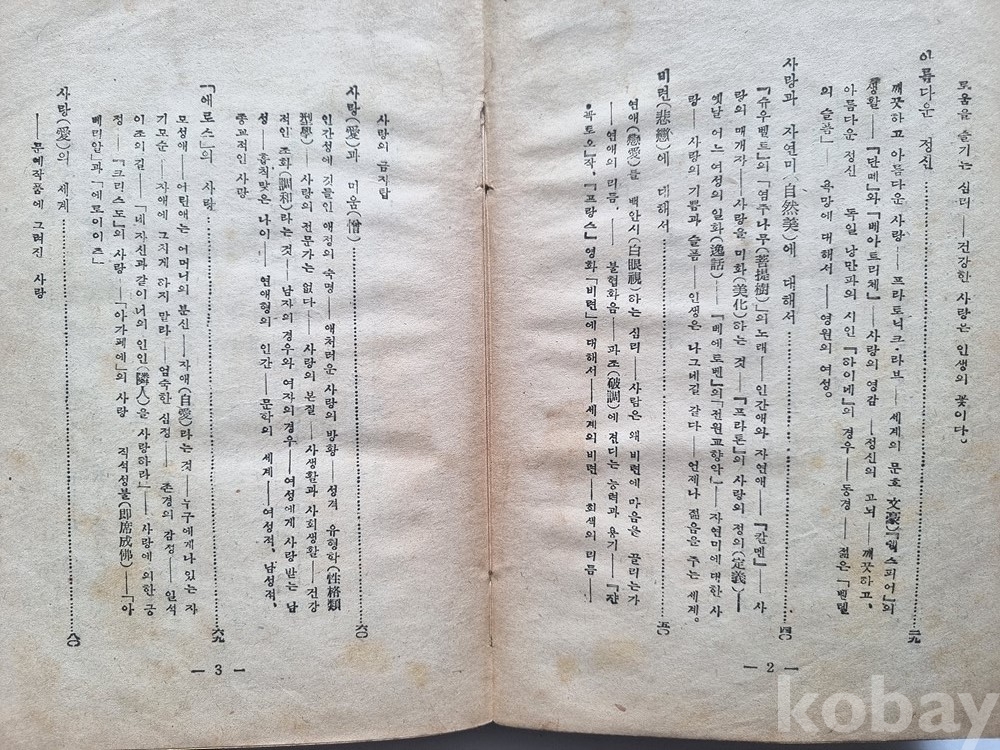 로움을 슬기는 심리──건강한 사랑은 인생의 꽃이다。
아름다운 정신……二九
깨끗하고 아름다운 사랑──프라토닉·라브──세계의 문호 文豪『쉑스피어』의
생활──『단떼』와『베아트리체』──사랑의 영감──정신의 고뇌──깨끗하고、
아름다운 정신 독일 낭만파의 시인『하이네』의 경우──동경──젊은『벨텔
의 슬픔』 욕망에 대해서──영원의 여성。
사랑과 자연미(自然美)에 대해서……四〇
『슈우벨트』의『염주나무(菩提樹)』의 노래──인간애와 자연애──『칸멘』──사
랑의 매개자──사랑을 미화(美化)하는 것──『프라톤』의 사랑의 정의(定義)──
옛날 어느 여성의 일화(逸話)──『베에토벤』의『전원교향악』──자연미에 대한 사
랑──사랑의 기쁨과 슬픔──인생은 나그네길 같다──언제나 젊음을 주는 세계。
비련(悲戀)에 대해서……五〇
연애(戀愛)를 백안시(白眼視)하는 심리──사람은 왜 비련에 마음을 끌리는가
──연애의 리듬、 불협화음──파조(破調)에 견디는 능력과 용기──『쟌
·콕토오』작、『프랑스』영화『비련』에 대해서──세계의 비련──회색의 리듬──
— 2 —
사랑의 금자탑
사랑(愛)과 미움(憎)……六〇
인간성에 깃들인 애정의 숙명──애처러운 사랑의 방황──성격 유형학(性格類
型學)──사랑의 전문가는 없다──사랑의 본질──사생활과 사회생활──건강
적인 조화(調和)라는 것──남자의 경우와 여자의 경우──여성에게 사랑 받는 남
성──흡칙맞은 나이──연애형의 인간──문학의 세계──여성적、남성적、
종교적인 사랑
『에로스』의 사랑……六九
모성애──어린애는 어머니의 분신──자애(自愛)라는 것──누구에게나 있는 자
기모순──자애에 그치게 하지 말라──엄숙한 심정── 존경의 감정──일석
이조의 길──「네 자신과 같이 너의 인인(隣人)을 사랑하라」──사랑에 의한 긍
정──『크리스도』의 사랑──『아가페에』의 사랑 직석성불(即席成佛)──『아
베리알』과『에로이이즈』
사랑(愛)의 세계……八〇
──문예작품에 그려진 사랑
— 3 —
kobay